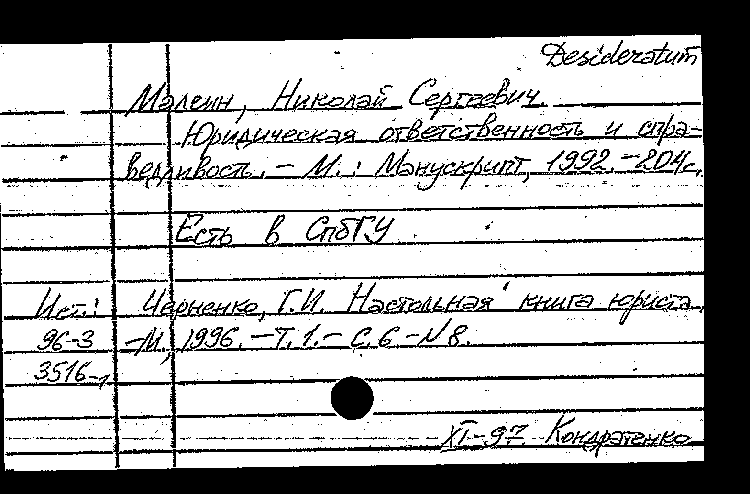 Desideratum
Малеин, Николай Сергеевич.
Юридическая ответственность и спра-
ведливость. – М. : Манускрипт, 1992. – 204 с.
Есть в СпбГУ
Ист.: Черненко, Г.И. Настольная книга юриста.
96-3 – М., 1996. – Т. 1. – С. 6 – N 8.
3516-1
XI-97 Кондратенко